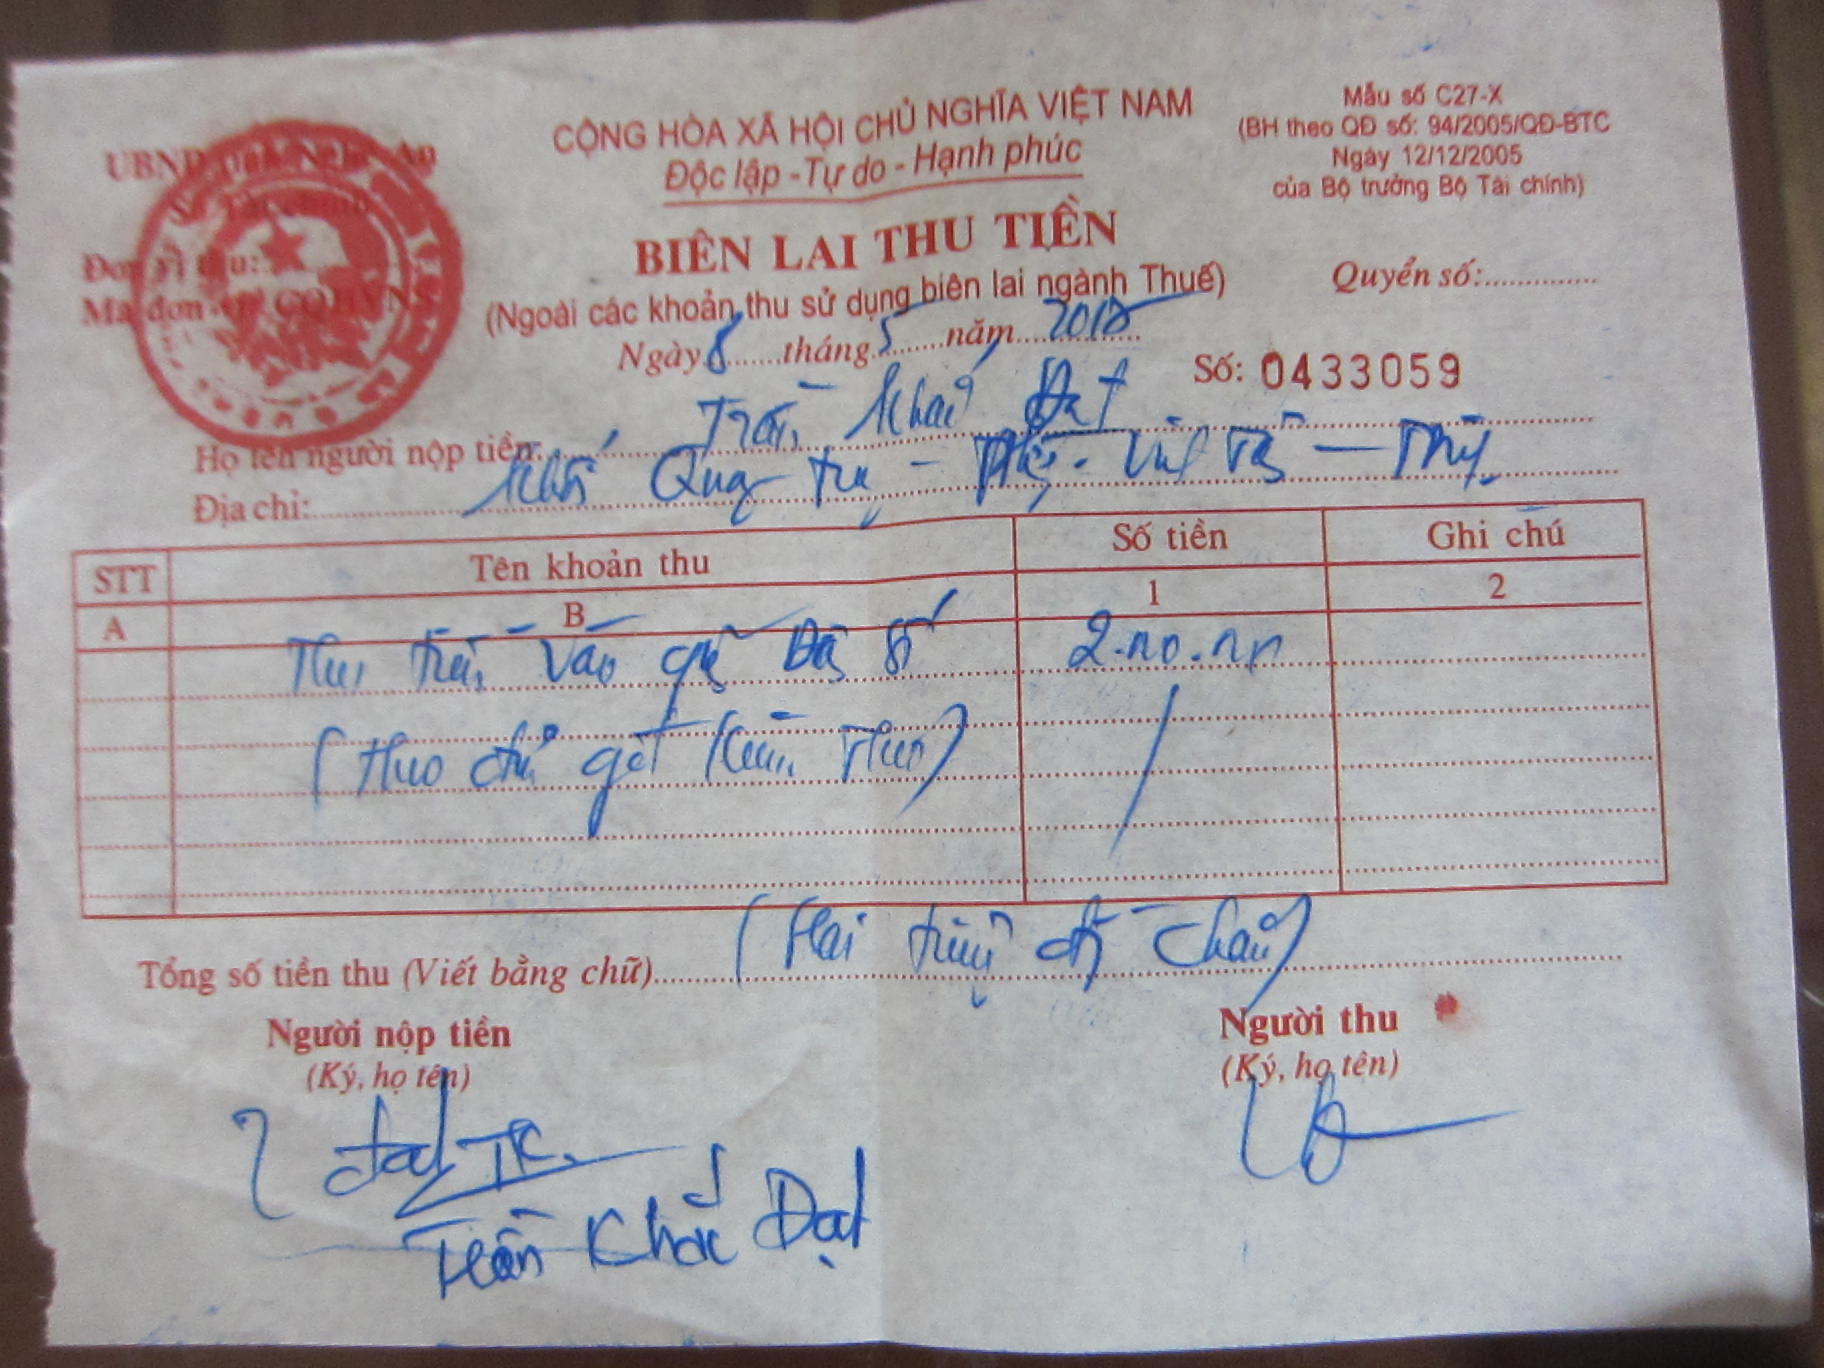 UBND tỉnh Nghệ An
Sở Tài chính
Đơn vị thu:
Mã đơn vị CQHVNS
CỘNG HÒA XÃ HỘI CHỦ NGHĨA VIỆT NAM
Độc lập - Tự do - Hạnh phúc
Mẫu số C27-X
(BH theo QĐ số: 94/2005/QĐ-BTC
Ngày 12/12/2005
của Bộ trưởng Bộ Tài chính)
BIÊN LAI THU TIỀN
(Ngoài các khoản thu sử dụng biên lai ngành Thuế)
Quyển số:
Ngày 8 tháng 5 năm 2012
Số: 0433059
Họ tên người nộp tiền: Trần Khắc Đạt
Địa chỉ: Khối Quang
STT Tên khoản thu Số tiền Ghi chú
A B 1 2
Thu tiền vào quỹ
Tổng số tiền thu (Viết bằng chữ) (Hai triệu đ chẵn)
Người nộp tiền
(Ký, họ tên)
Người thu
(Ký, họ tên)
Trần Khắc Đạt